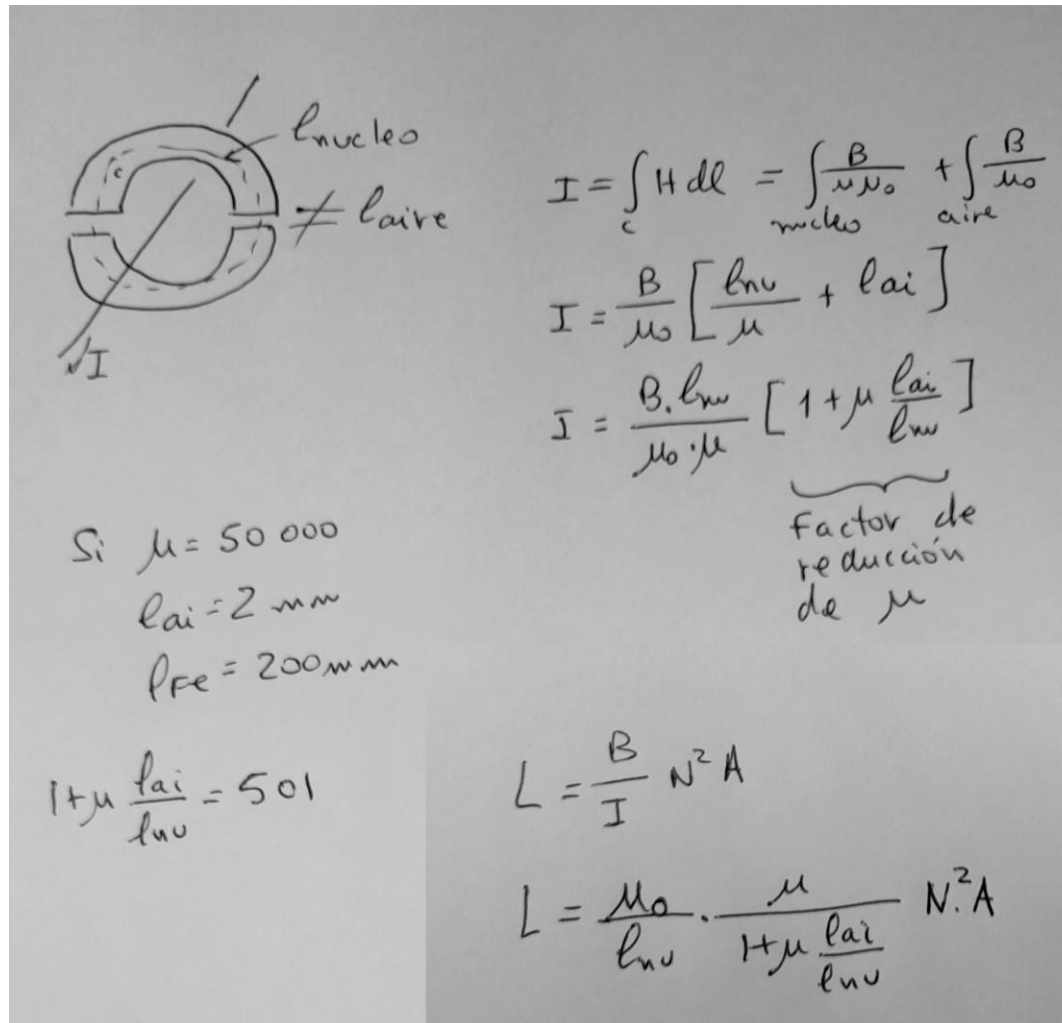 lnucleo
c
≠ laire
I
I = ∫ H dl = ∫ B/μμ₀ + ∫ B/μ₀
c nucleo aire
I = B/μ₀ [ lnu/μ + lai ]
I = B.lnu/μ₀·μ [ 1 + μ lai/lnu ]
Factor de
reducción
de μ
Si μ = 50 000
lai = 2 mm
lFe = 200 mm
1+μ lai/lnu = 501
L = B/I N² A
L = μ₀/lnu · μ/(1+μ lai/lnu) N.² A